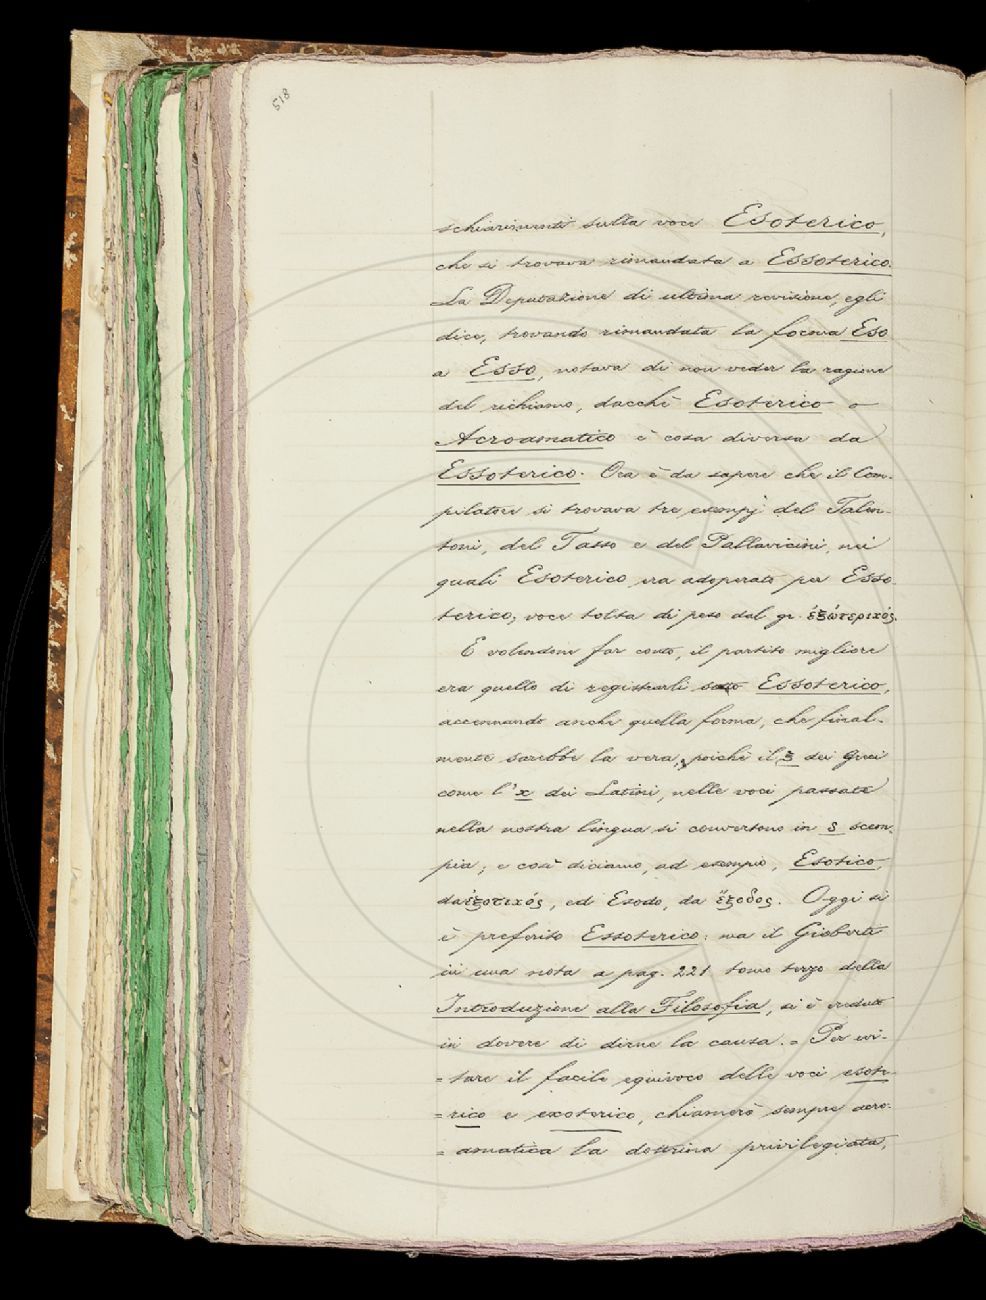 518
schiarimenti sulla voce Esoterico,
che si trovava rimandata a Essoterico.
La Deputazione di ultima revisione, egli
dice, trovando rimandata la forma Eso
a Esso, notava di non veder la ragione
del richiamo, dacchè Esoterico o
Acroamatico è cosa diversa da
Essoterico. Ora è da sapere che il Com-
pilatore si trovava tre esempj del Talen-
toni, del Tasso e del Pallavicini, nei
quali Esoterico era adoperato per Esso
terico, voce tolta di peso dal gr. ἐξώτερικός.
E volendone far conto, il partito migliore
era quello di registrarli sotto Essoterico,
accennando anche quella forma, che final-
mente sarebbe la vera, poichè il ξ dei Greci
come l'x dei Latini, nelle voci passate
nella nostra lingua si convertono in s scem-
pia; e così diciamo, ad esempio, Esotico,
da ἐξοτικός, ed Esodo, da ἔξοδος. Oggi si
è preferito Essoterico: ma il Gioberti
in una nota a pag. 221 tomo terzo della
Introduzione alla Filosofia, si è creduto
in dovere di dirne la causa. = Per evi-
= tare il facile equivoco delle voci esote-
= rico e exoterico, chiamerò sempre acro-
= amatica la dottrina privilegiata,